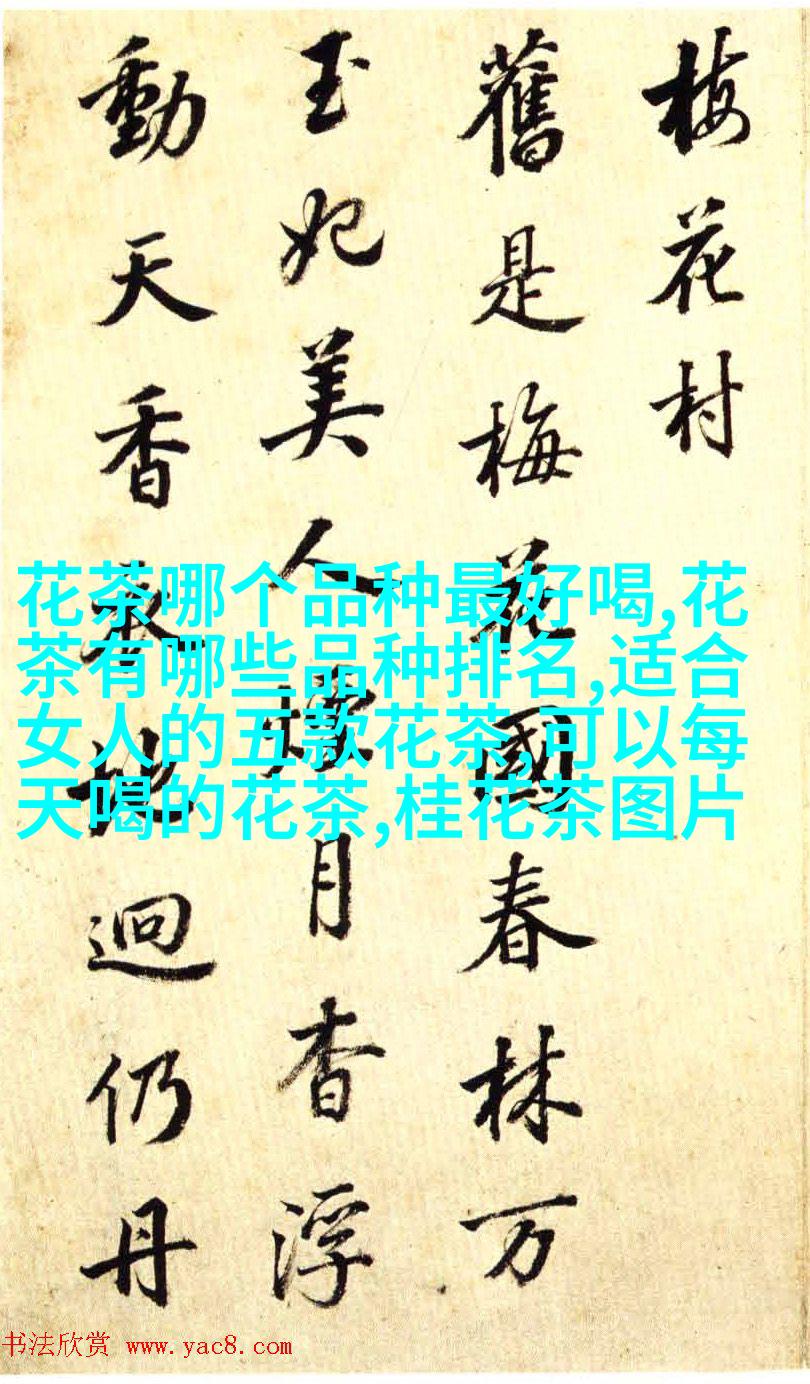 梅花村
舊是梅花國春林万
玉妃美人月杳浮
動天香來地迥仍丹
花茶哪个品种最好喝,花
茶有哪些品种排名,适合
女人的五款花茶,可以每
天喝的花茶,桂花茶图片
书法欣赏 www.yac8.com